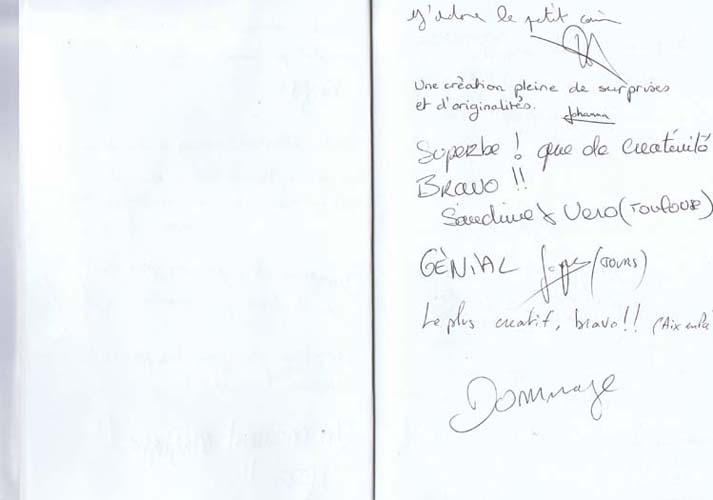 j'adore le petit coin
Une création pleine de surprises
et d'originalités.
Johanna
Superbe ! que de créativité
BRAVO !!
Sandrine & Vero (TOULOUSE)
GÉNIAL (TOURS)
Le plus creatif, bravo!! (Aix en
Dommage